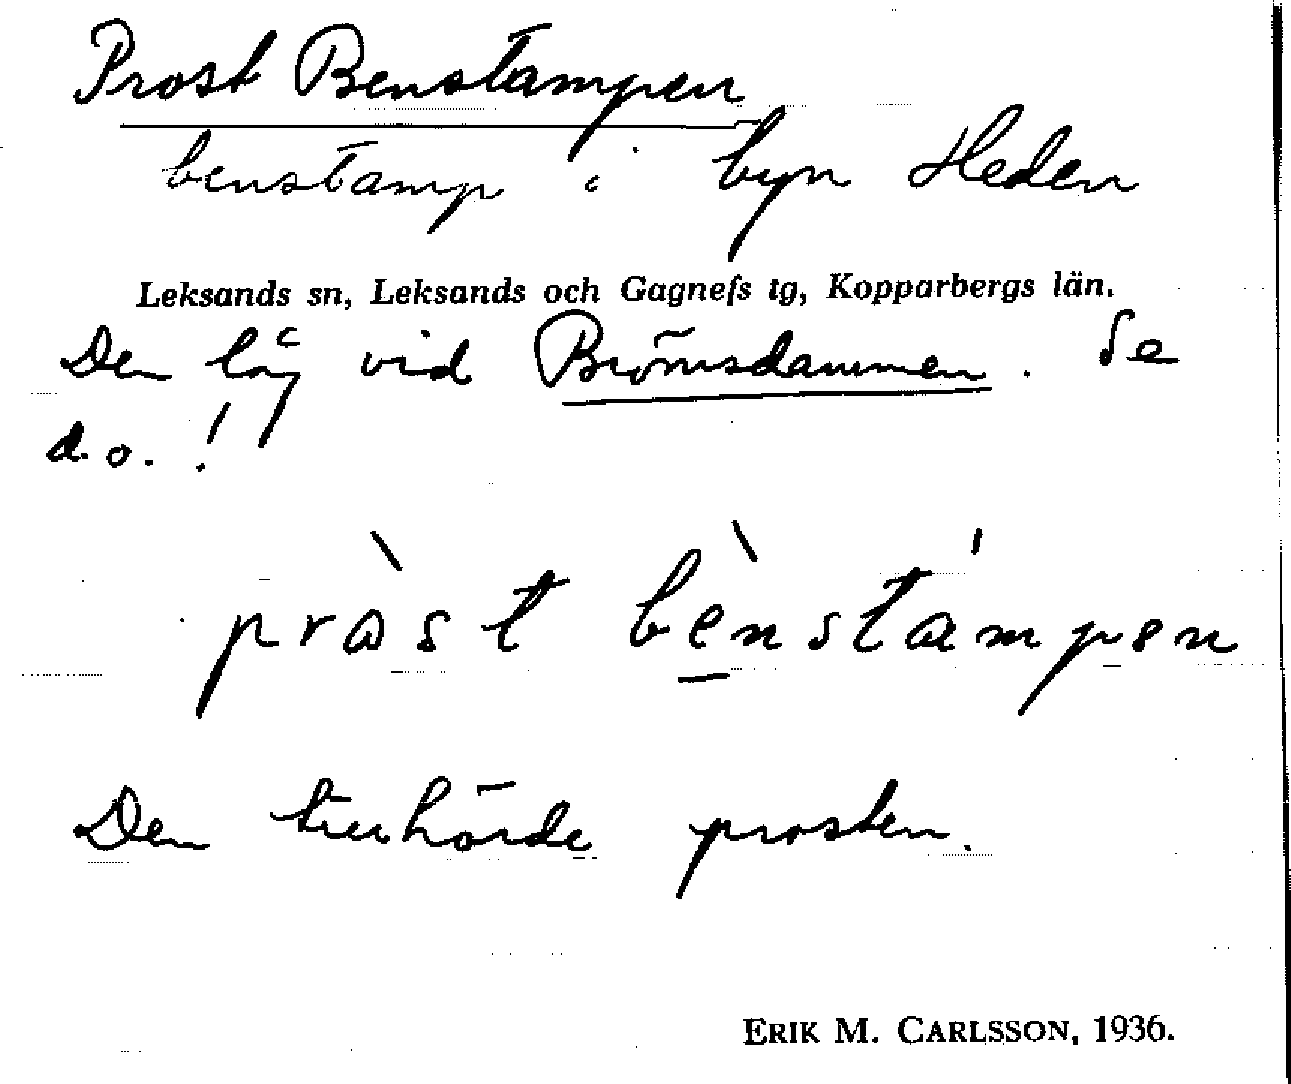 Prost Benstampen
benstamp i byn Heden
Leksands sn, Leksands och Gagnefs tg, Kopparbergs län.
Den låg vid Brömsdammen. Se
d. o. !
pròst bènstámpen
Den tillhörde prosten.
ERIK M. CARLSSON, 1936.